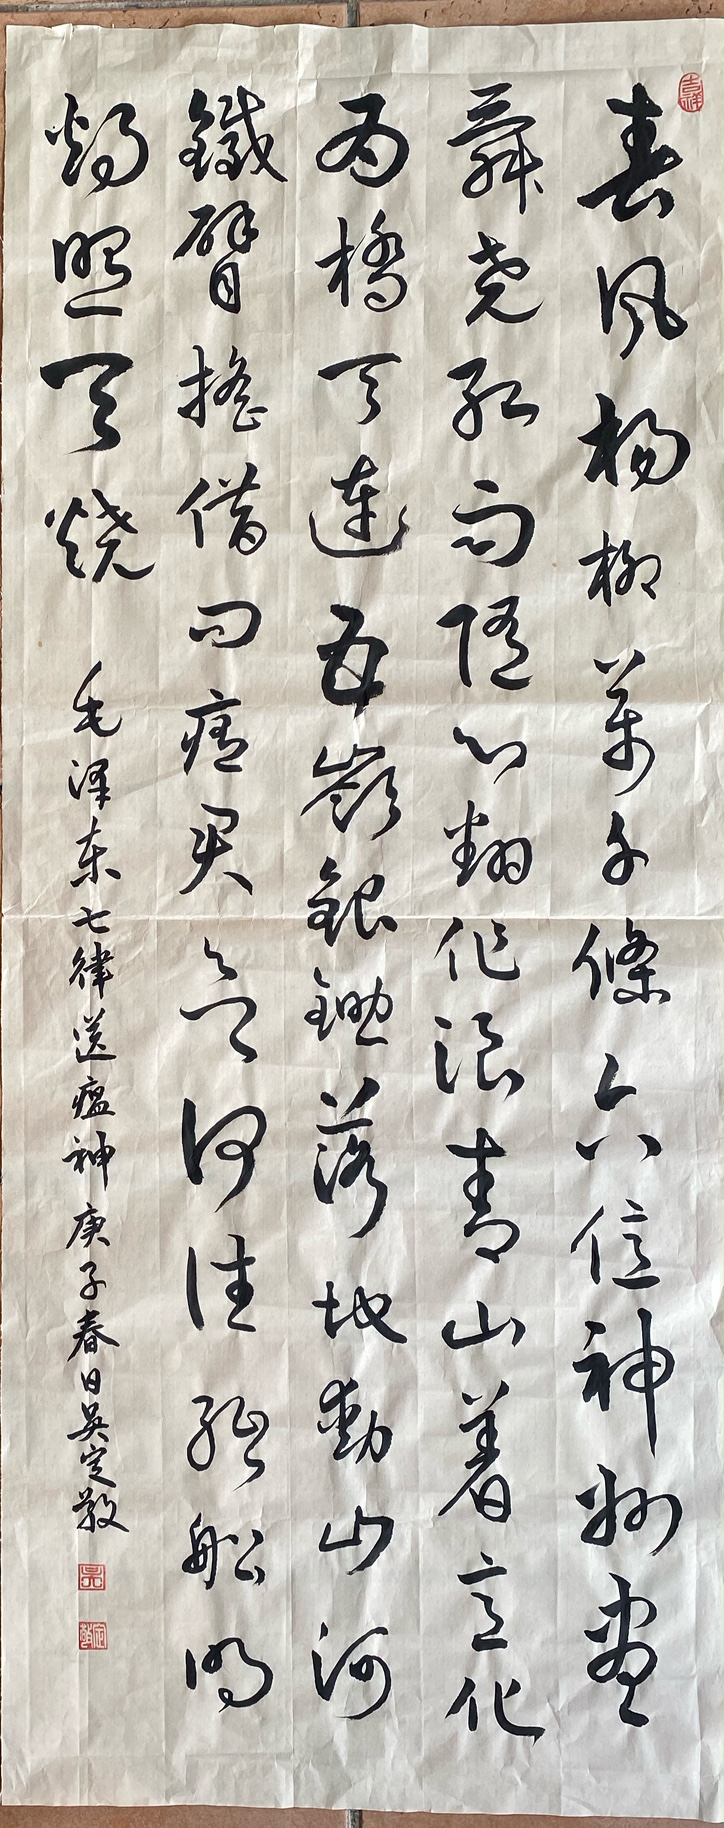 吉祥
春风楊柳萬千條六億神州盡
舜堯紅雨隨心翻作浪青山著意化
為橋天連五嶺銀鋤落地動山河
鐵臂搖借問瘟君欲何往紙船明
燭照天燒
毛泽东七律送瘟神 庚子春日吴定敬